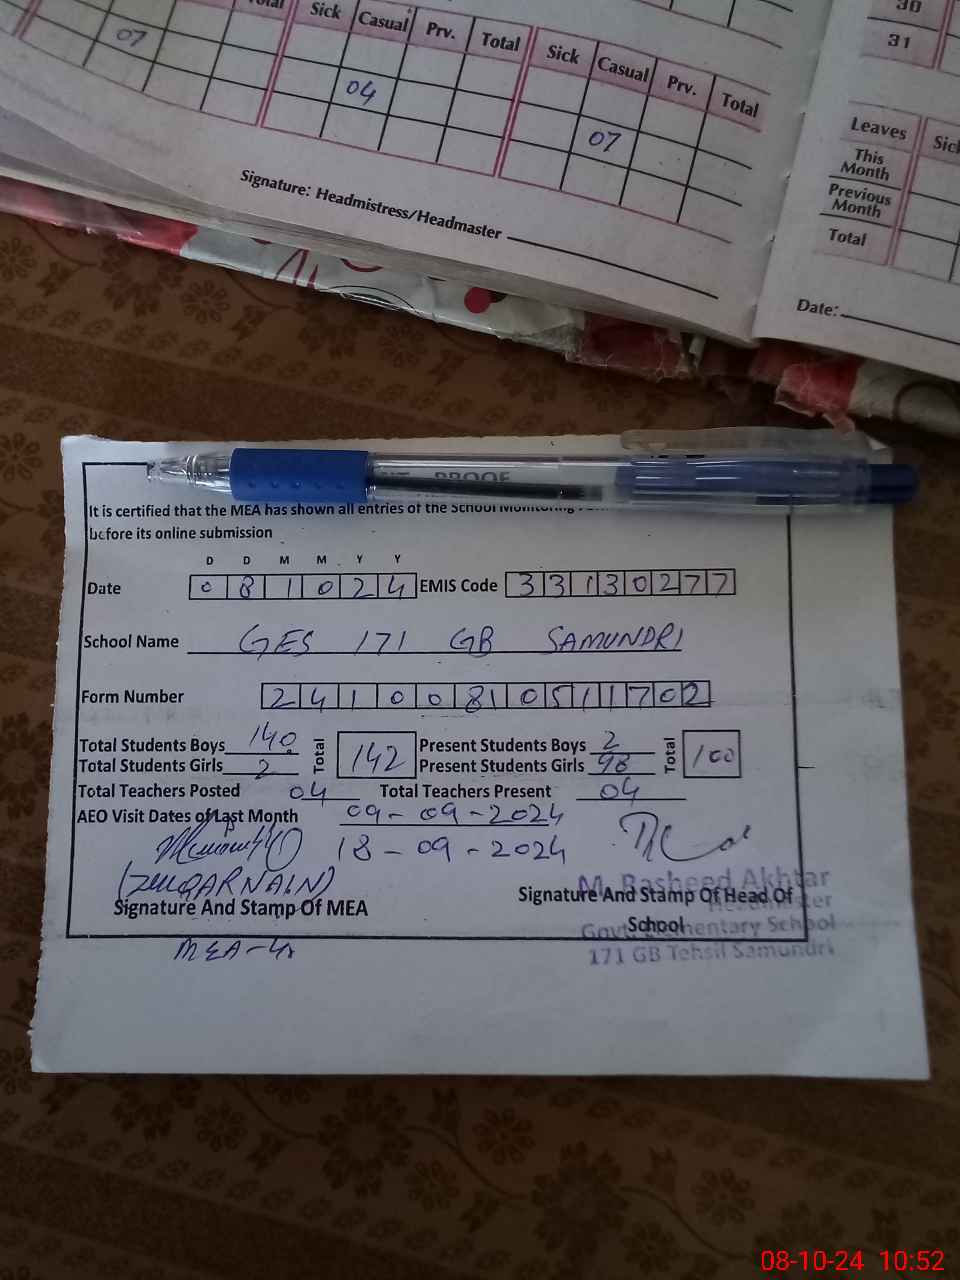 Total Sick Casual Prv. Total Sick Casual Prv. Total
07 04 07
Signature: Headmistress/Headmaster
30
31
Leaves
This Month
Previous Month
Total
Date:
PROOF
It is certified that the MEA has shown all entries of the School Monitoring
before its online submission
D D M M Y Y
Date 0 8 1 0 2 4 EMIS Code 3 3 1 3 0 2 7 7
School Name GES 171 GB SAMUNDRI
Form Number 2 4 1 0 0 8 1 0 5 1 1 7 0 2
Total Students Boys 140 Total 142 Present Students Boys 2 Total 100
Total Students Girls 2 Present Students Girls 98
Total Teachers Posted 04 Total Teachers Present 04
AEO Visit Dates of Last Month 09-09-2024
18-09-2024
(ZULQARNAIN)
M. Rasheed Akhtar
Signature And Stamp Of MEA Signature And Stamp Of Head Of School
Headmaster
Govt. Elementary School
171 GB Tehsil Samundri
08-10-24 10:52